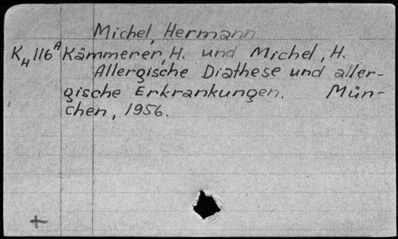 Michel, Hermann
K₄ 116ᴬ Kämmerer, H. und Michel, H.
Allergische Diathese und aller-
gische Erkrankungen. Mün-
chen, 1956.
+